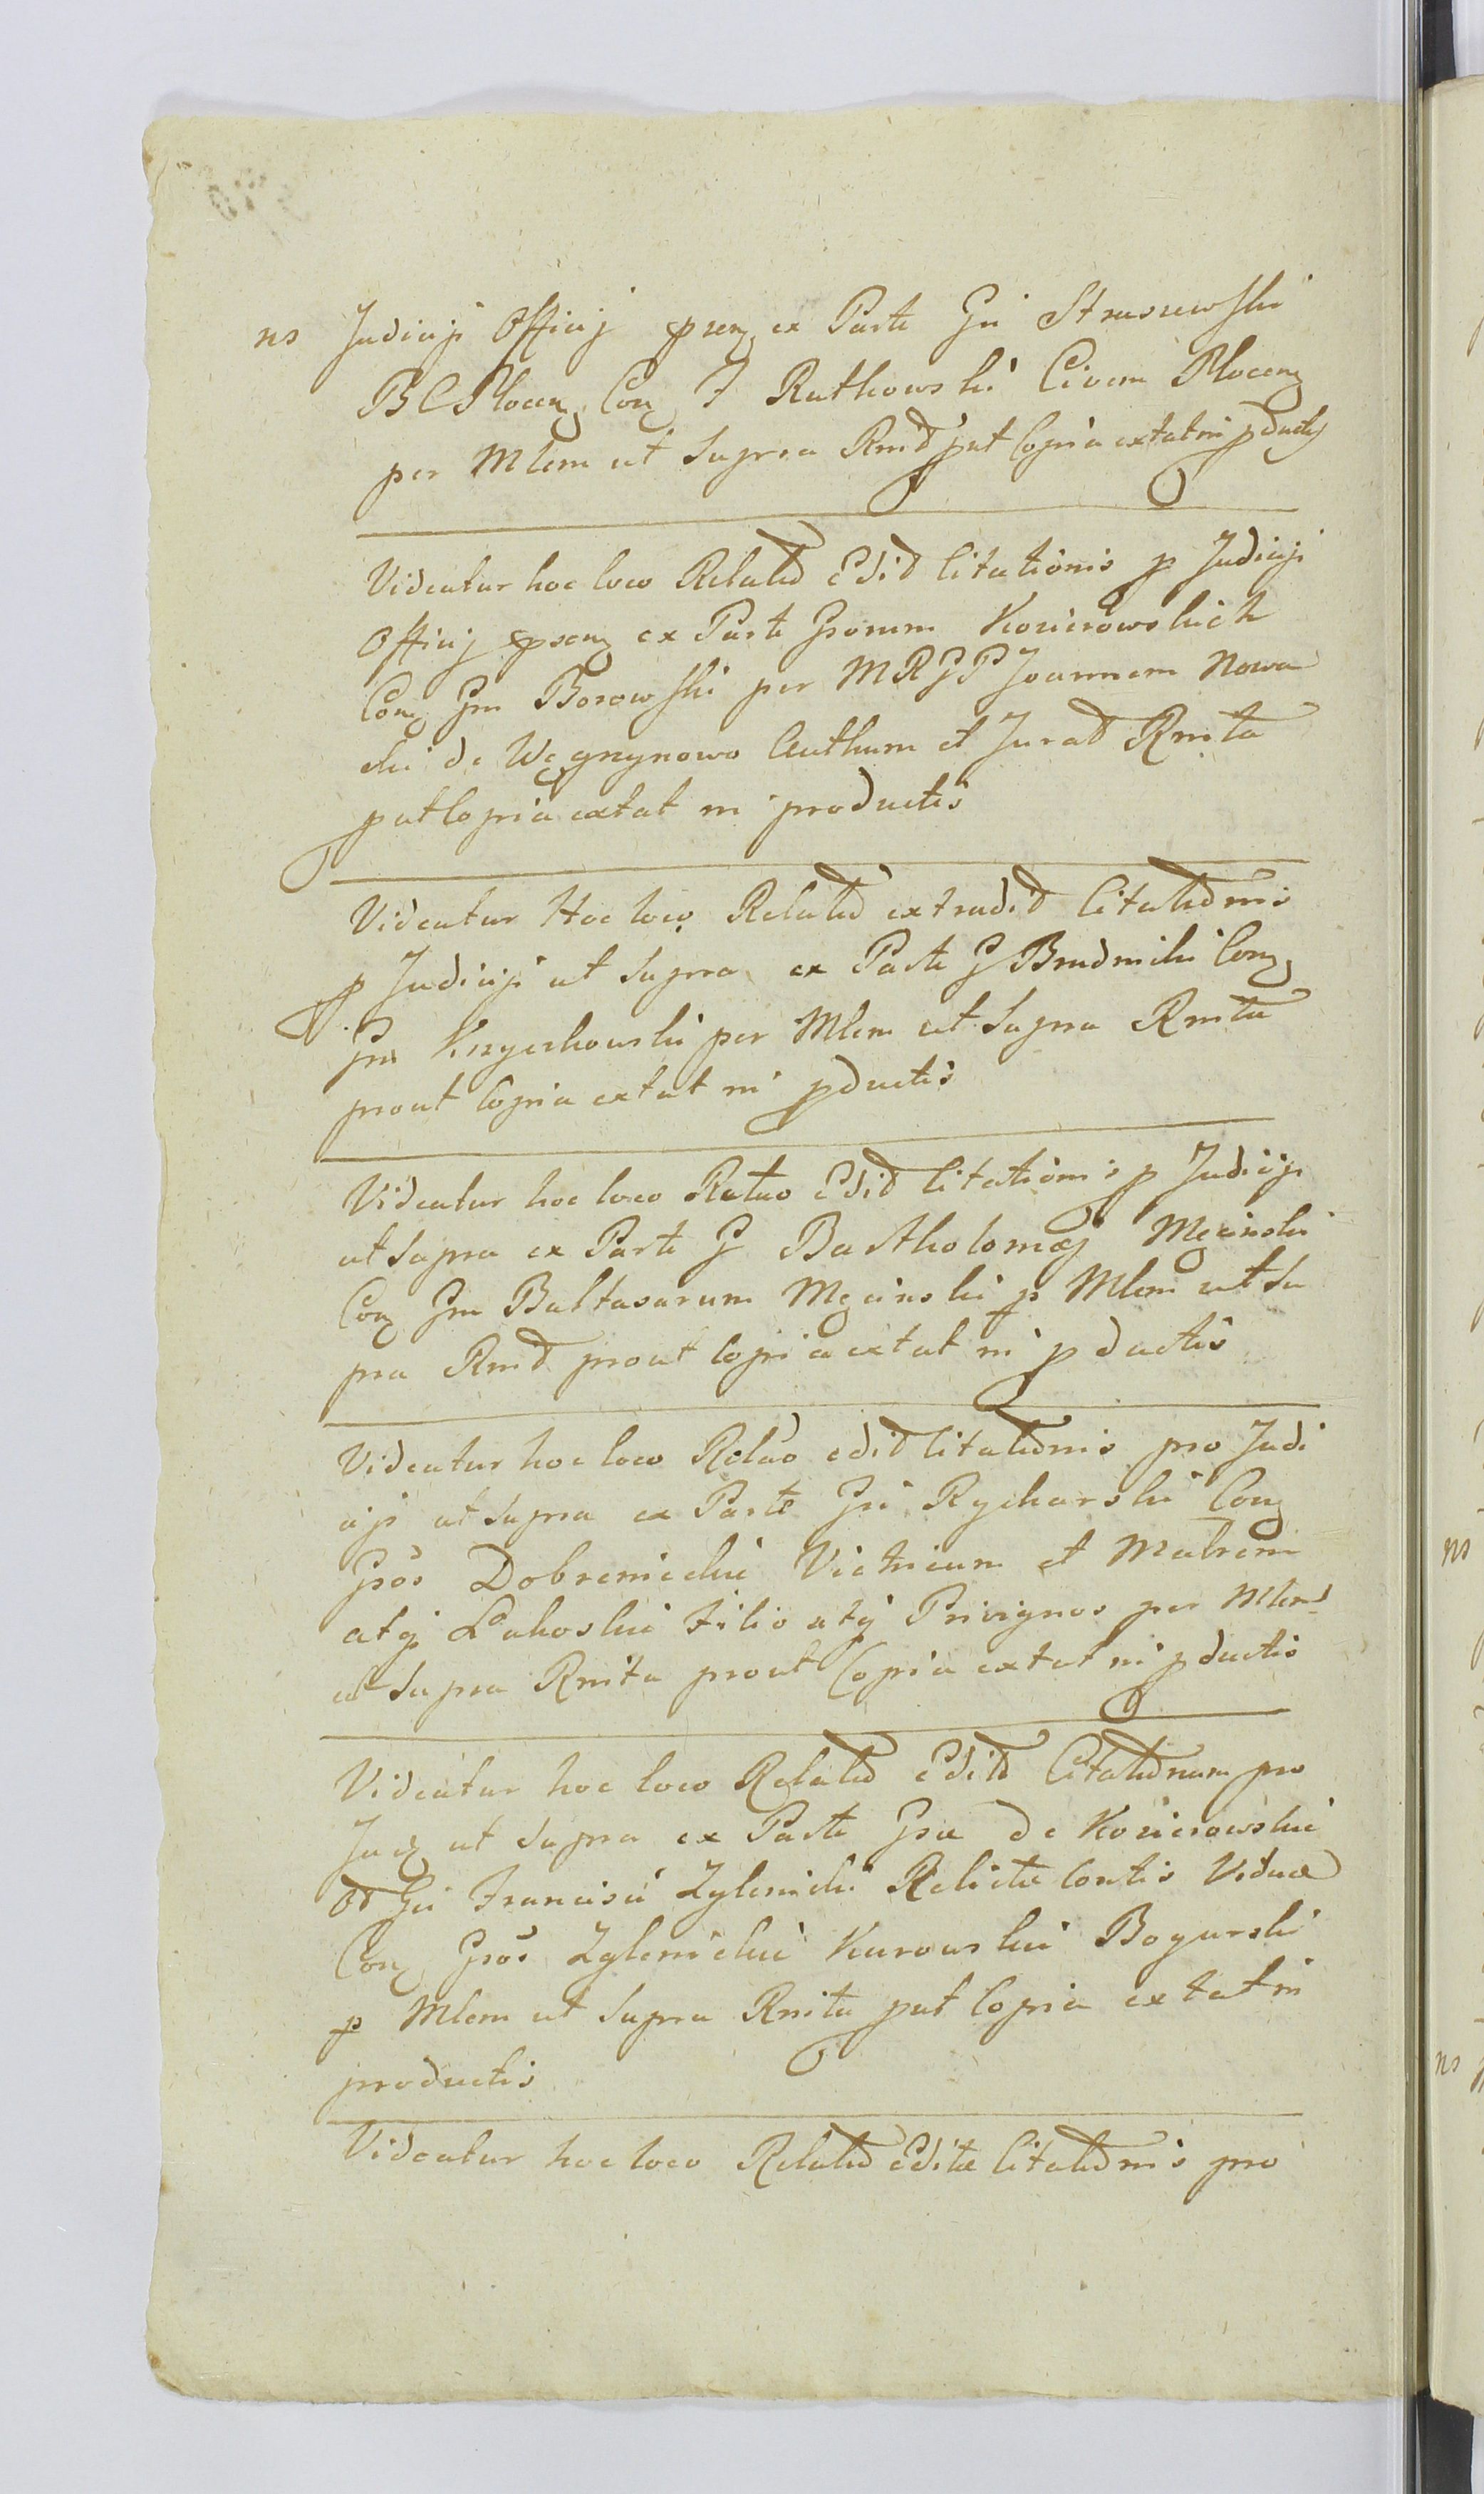 ns Judicij Officij psenz ex Parte Gri Straszewski
BC Plocen Con F Rutkowski Civem Plocenz
per Mlem ut Supra Rmtd put Copia extat in pductis
Videatur hoc loco Relatio Edit Citationis p Judicij
Officij psenz ex Parte Grorum Kozierowskich
Con Grm Borowski per MRGP Joannem Nowa
cki de Węgrzynowo Authum et Jurat Rnita
put Copia extat in productis
Videatur Hoc loco Relatio extradit Citationis
p Judicij ut Supra ex Parte G Brudnicki Con
Grm Krzyczkowski per Mlem ut Supra Rnita
prout Copia extat in pductis
Videatur hoc loco Relatio Edit Citationis p Judicij
ut Supra ex Parte G Bartholomæj Męcinski
Con Grm Baltasarum Męcinski p Mlem ut Su
pra Rnit prout Copia extat in pductis
Videatur hoc loco Relao edit Citationis pro Judi
cij ut Supra ex Parte Gri Rycharski Con
Gros Dobrenieckie Victricum et Matrem
atq Lakoskie Filio atq Privignos per Mlem
ut Supra Rnita prout Copia extat in pductis
Videatur hoc loco Relatio Edit Citationum pro
Judz ut Supra ex Parte Grae de Kozierowskie
Od Gri Francisci Zglenicki Relictæ Contis Viduæ
Con Gros Zglenickie Kurowskie Bogurski
p Mlem ut Supra Rnita put Copia extat in
productis
Videatur hoc loco Relatio Editæ Citationis pro
ns
ns